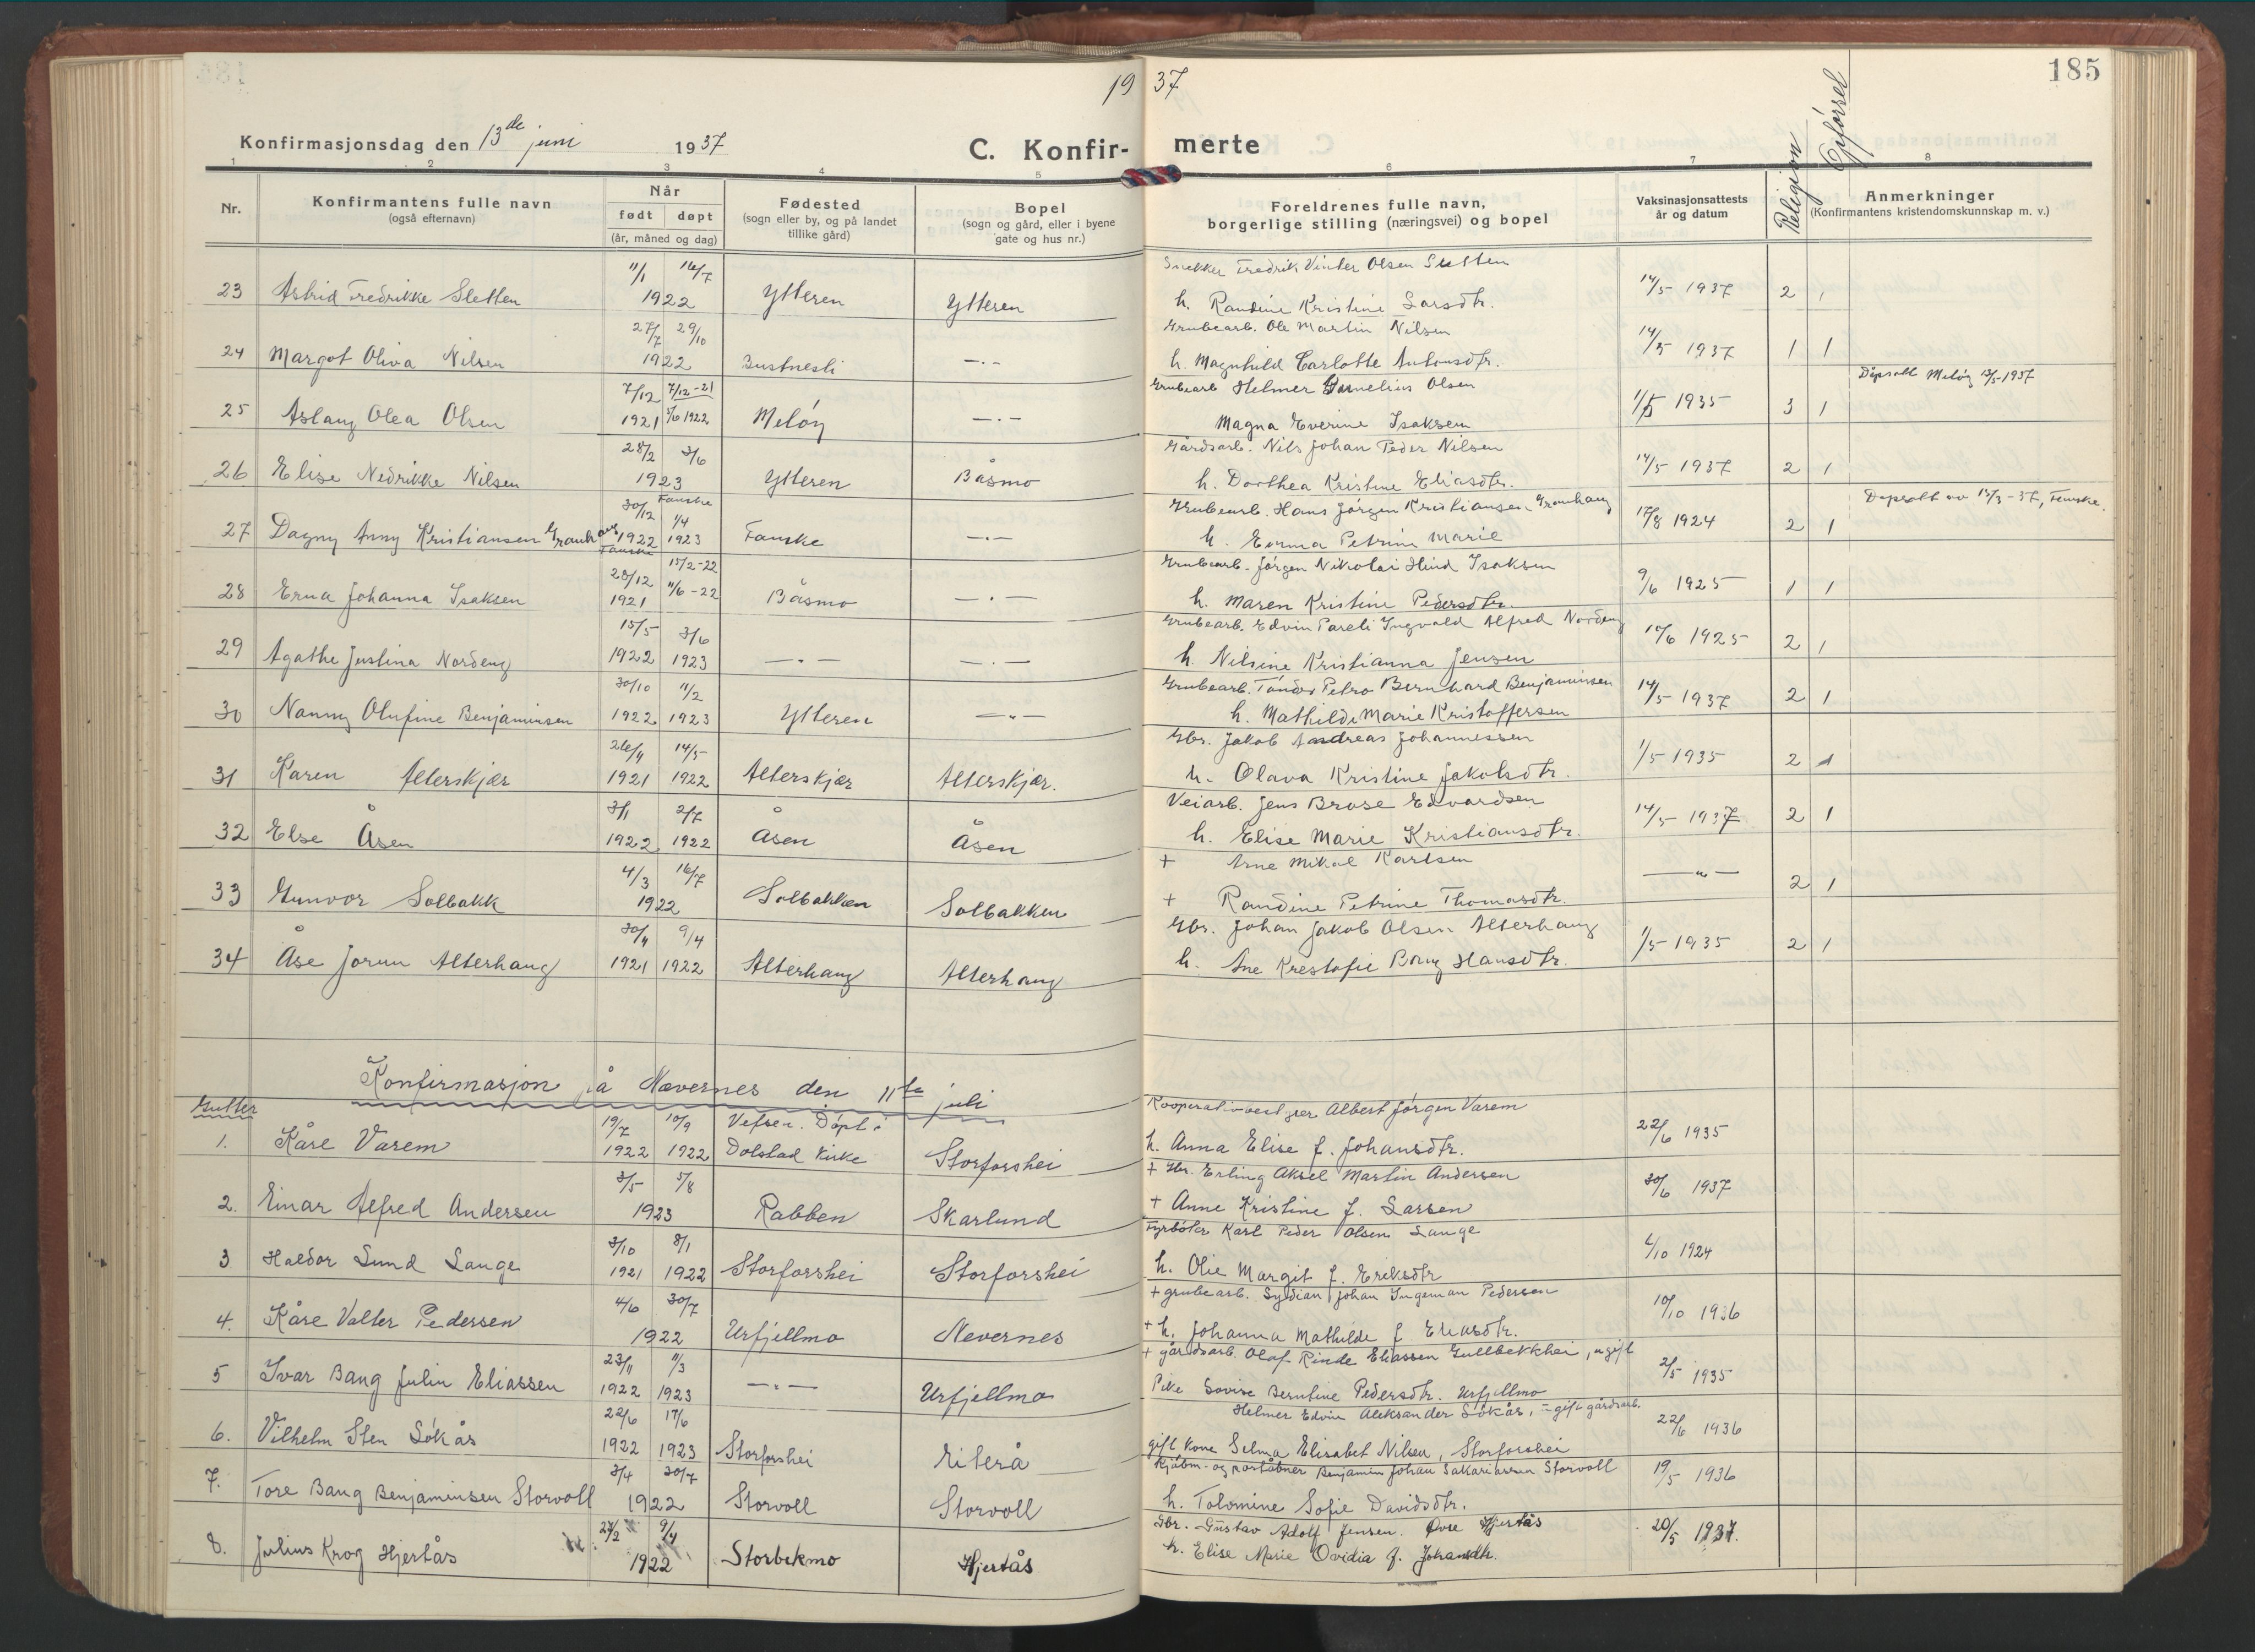 19 37
185
Konfirmasjonsdag den 13de juni 1937
C. Konfir- merte
Religion
Opførsel
1 2 3 4 5 6 7 8
Nr.
Konfirmantens fulle navn
(også efternavn)
Når
født døpt
(år, måned og dag)
Fødested
(sogn eller by, og på landet
tillike gård)
Bopel
(sogn og gård, eller i byene
gate og hus nr.)
Foreldrenes fulle navn,
borgerlige stilling (næringsvei) og bopel
Vaksinasjonsattests
år og datum
Anmerkninger
(Konfirmantens kristendomskunnskap m. v.)
11/1 16/7 Snekker Fredrik Vinter Olsen Sletten
23 Astrid Fredrikke Sletten 1922 Ytteren Ytteren h. Randine Kristine Larsdtr. 14/5 1937 2 1
27/7 29/10 Grubearb. Ole Martin Nilsen
24 Margot Oliva Nilsen 1922 Bustnesli —·— h. Magnhild Carlotte Antonsdtr. 14/5 1937 1 1
7/12 7/12-21 Grubearb Helmer Kornelius Olsen Dåpsatt Meløy 13/5-1937
25 Aslaug Olea Olsen 1921 5/6 1922 Meløy —·— Magna Everine Isaksen 1/5 1935 3 1
28/2 3/6 Gårdsarb. Nils Johan Peder Nilsen
26 Elise Nedrikke Nilsen 1923 Ytteren Båsmo h. Dorthea Kristine Eliasdtr. 14/5 1937 2 1
30/12 Fauske 1/4 Grubearb. Hans Jørgen Kristiansen Granhaug Dåpsatt av 15/3-37, Fauske.
27 Dagny Anny Kristiansen Granhaug 1922 1923 Fauske —·— h. Emma Petrine Marie 17/8 1924 2 1
Fauske
28/12 15/2-22 Grubearb. Jørgen Nikolai Hind Isaksen
28 Erna Johanna Isaksen 1921 11/6-22 Båsmo —·— h. Maren Kristine Pedersdtr. 9/6 1925 1 1
15/5 3/6 Grubearb. Edvin Pareli Ingvald Alfred Nordeng
29 Agathe Justina Nordeng 1922 1923 —·— —·— h. Nilsine Kristianna Jensen 10/6 1925 2 1
30/10 11/2 Grubearb. Tønder Petro Bernhard Benjaminsen
30 Nanny Olufine Benjaminsen 1922 1923 Ytteren —"— h. Mathilde Marie Kristoffersen 14/5 1937 2 1
26/11 14/5 Gbr. Jakob Andreas Johannessen
31 Karen Alterskjær 1921 1922 Alterskjær Alterskjær. h. Olava Kristine Jakobsdtr. 1/5 1935 2 1
3/1 2/7 Veiarb. Jens Brose Edvardsen
32 Else Åsen 1922 1922 Åsen Åsen h. Elise Marie Kristiansdtr. 14/5 1937 2 1
4/3 16/7 + Arne Mikal Karlsen
33 Gunvor Solbakk 1922 Solbakken Solbakken + Randine Petrine Thomasdtr. —"— 2 1
30/11 9/4 Gbr. Johan Jakob Olsen Alterhaug
34 Åse Jorun Alterhaug 1921 1922 Alterhaug Alterhaug h. Ane Krestofie Bang Hansdtr. 1/5 1935 2 1
Konfirmasjon på Nævernes den 11te juli
Gutter
19/7 10/9 Vefsen. Døpt i Kooperativbestyrer Albert Jørgen Varem
1. Kåre Varem 1922 1922 Dolstad kirke Storforshei h. Anna Elise f. Johansdtr. 22/6 1935
3/5 5/8 + Hr. Erling Aksel Martin Andersen
2. Einar Alfred Andersen 1923 Rabben Skarlund + Anne Kristine f. Larsen 30/6 1937
3/10 8/1 Fyrbøter Karl Peder Olsen Lange
3 Haldor Lund Lange 1921 1922 Storforshei Storforshei h. Olie Margit f. Eriksdtr 6/10 1924
4/6 30/7 + grubearb. Syldian Johan Ingeman Pedersen
4. Kåre Valter Pedersen 1922 Urfjellmo Nevernes + h. Johanna Mathilde f Eliasdtr. 10/10 1936
23/11 11/3 + gårdsarb. Olaf Rinde Eliassen Gullbekkhei, ugift
5 Ivar Bang Julin Eliassen 1922 1923 —"— Urfjellmo Pike Lovise Berntine Pedersdtr. Urfjellmo 2/5 1935
22/6 17/6 Helmer Edvin Aleksander Søkås, gift gårdsarb.
6. Vilhelm Sten Søkås 1922 1923 Storforshei Eiterå gift kone Selma Elisabet Nilsen, Storforshei 22/6 1936
3/4 30/7 Kjøbm- og poståbner Benjamin Johan Sakariassen Storvoll
7. Tore Bang Benjaminsen Storvoll 1922 Storvoll Storvoll h. Tolomine Sofie Davidsdtr. 19/5 1936
27/2 9/4 Gbr. Gustav Adolf Jensen. Øvre Hjertås
8. Julius Krog Hjertås 1922 Storbekmo Hjertås h. Elise Marie Ovidia f. Johansdtr. 20/5 1937.